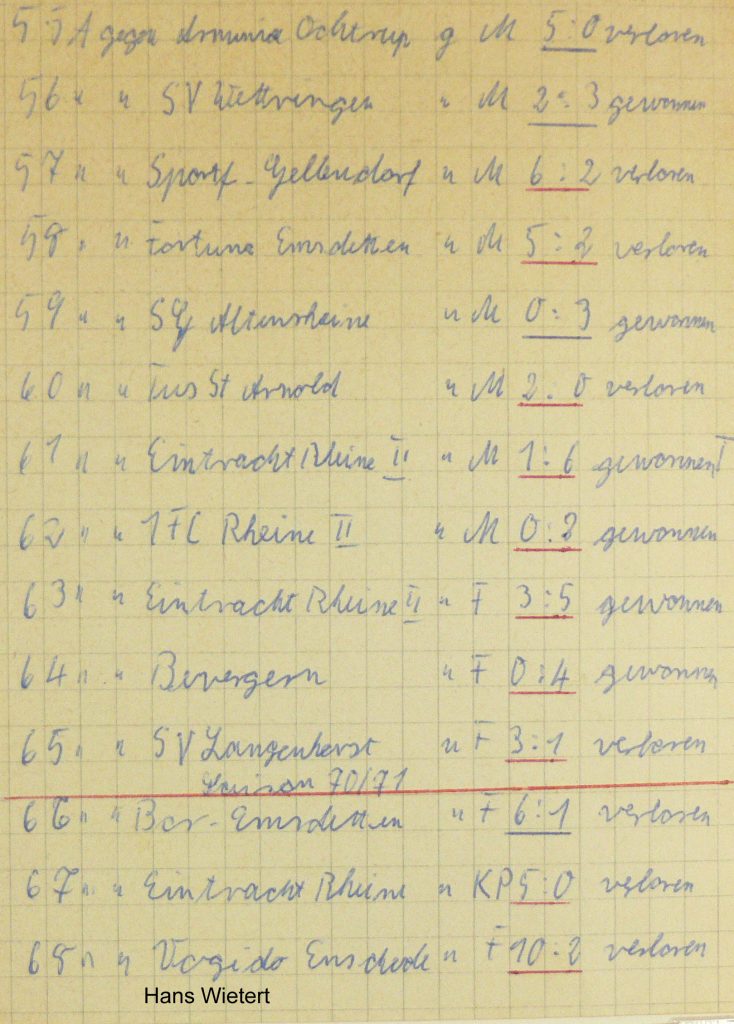 55 A gegen Arminia Ochtrup g M 5:0 verloren
56 " " SV Wettringen " M 2:3 gewonnen
57 " " Sportf. Gellendorf " M 6:2 verloren
58 " " Fortuna Emsdetten " M 5:2 verloren
59 " " SG Altenrheine " M 0:3 gewonnen
60 " " Tus St Arnold " M 2:0 verloren
61 " " Eintracht Rheine II " M 1:6 gewonnen
62 " " 1 FC Rheine II " M 0:2 gewonnen
63 " " Eintracht Rheine II " F 3:5 gewonnen
64 " " Bevergern " F 0:4 gewonnen
65 " " SV Langenhorst " F 3:1 verloren
Saison 70/71
66 " " Bor-Emsdetten " F 6:1 verloren
67 " " Eintracht Rheine " KP 5:0 verloren
68 " " Vogido Enschede " F 10:2 verloren
Hans Wietert